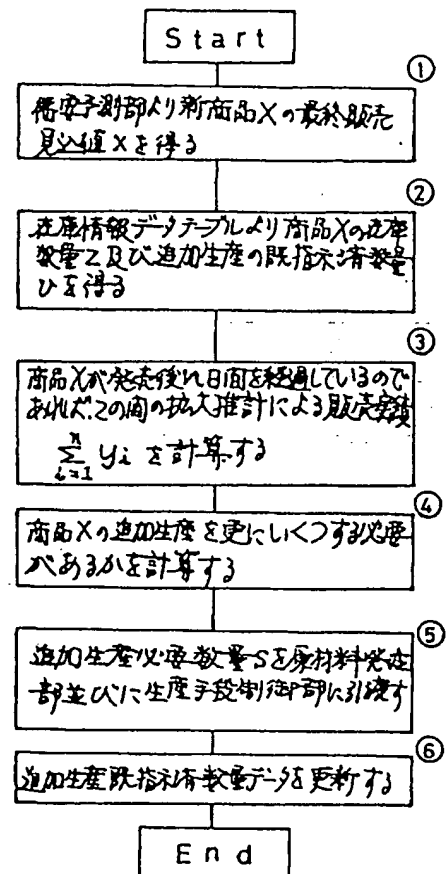 Start
①
需要予測部より新商品Xの最終販売
見込値xを得る
②
在庫情報データテーブルより商品Xの在庫
数量Z及び追加生産の既指示済数量
υを得る
③
商品Xが発売後n日間を経過しているので
あれば、この間の拡大推計による販売実績
\sum_{i=1}^{n} yi を計算する
④
商品Xの追加生産を更にいくつする必要
があるかを計算する
⑤
追加生産必要数量Sを原材料発注
部並びに生産手段制御部に引渡す
⑥
追加生産既指示済数量データを更新する
End